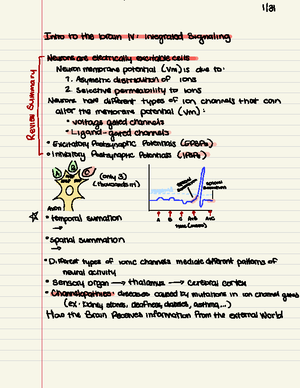 1/31
Intro to the brain IV: Integrated Signaling
Review Summary
Neurons are electrically excitable cells
Neuron membrane potential (Vm) is due to:
1. Asymetric distribution of ions
2. Selective permeability to ions
Neurons have different types of ion channels that can
alter the membrane potential (Vm):
• voltage gated channels
• Ligand-gated channels
• Excitatory Postsynaptic Potentials (EPSPs)
• Inhibitory Postsynaptic Potentials (IPSPs)
(only 3)
(thousands in)
Axon
A B C A+B A+C
Time (msec)
• temporal sumation
→
• spatial summation
→
• Different types of ionic channels mediate different patterns of
neural activity
• Sensory organ → thalamus → cerebral cortex
• Channelopathies: diseases caused by mutations in ion channel genes
(ex. kidney stones, deafness, diabetes, asthma...)
How the Brain Receives information from the External World